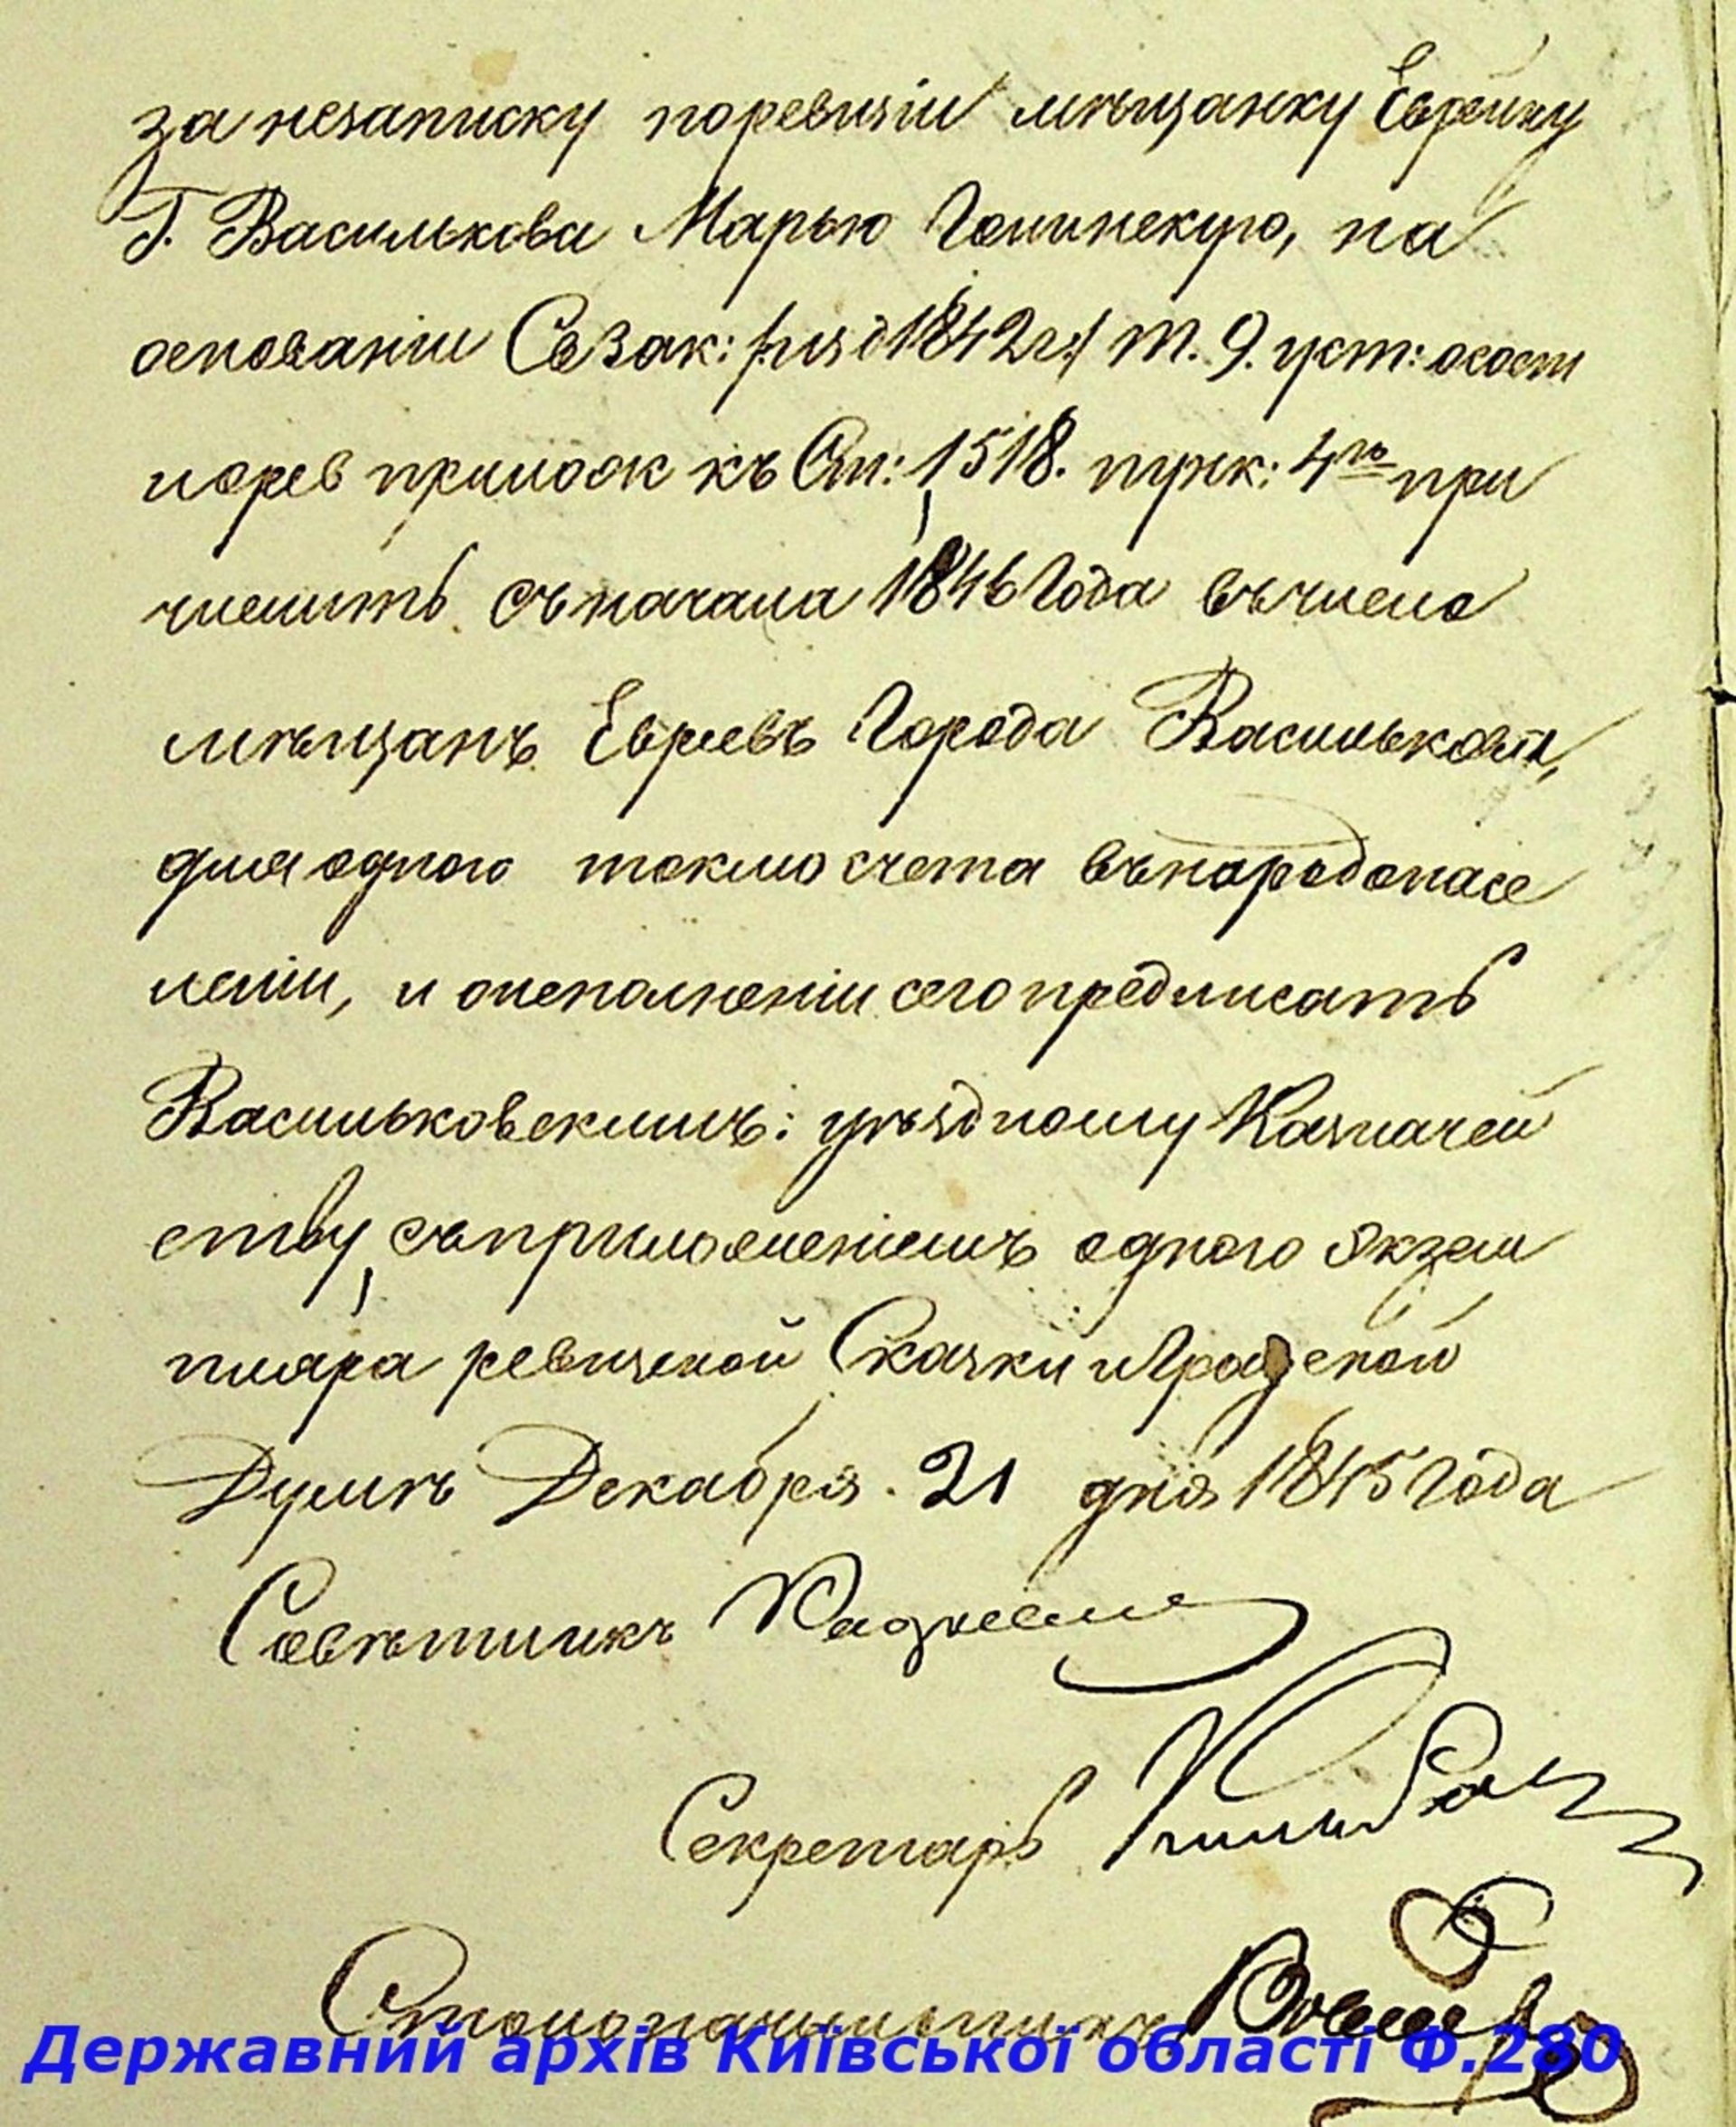 за незаписку поревизіи мѣщанку Еврейку
Г. Василькова Марью Голинскую, на
основаніи Св Зак: /: изд 1842 г :/ т. 9. уст: осост
ирев прилож къ Ст: 1518. пунк: 4му при
числить съ начала 1846 Года въ число
мѣщанъ Евреевъ Города Василькова,
для одного токмо счета въ народонасе
леніи, и оисполненіи сего предписать
Васильковскимъ: уѣздному Казначей
ству съ приложеніемъ одного экзем
пляра ревизской Сказки и Градской
Думѣ Декабря. 21 дня 1845 года
Совѣтникъ
Секретарь
Столоначальникъ
Державний архів Київської області Ф.280